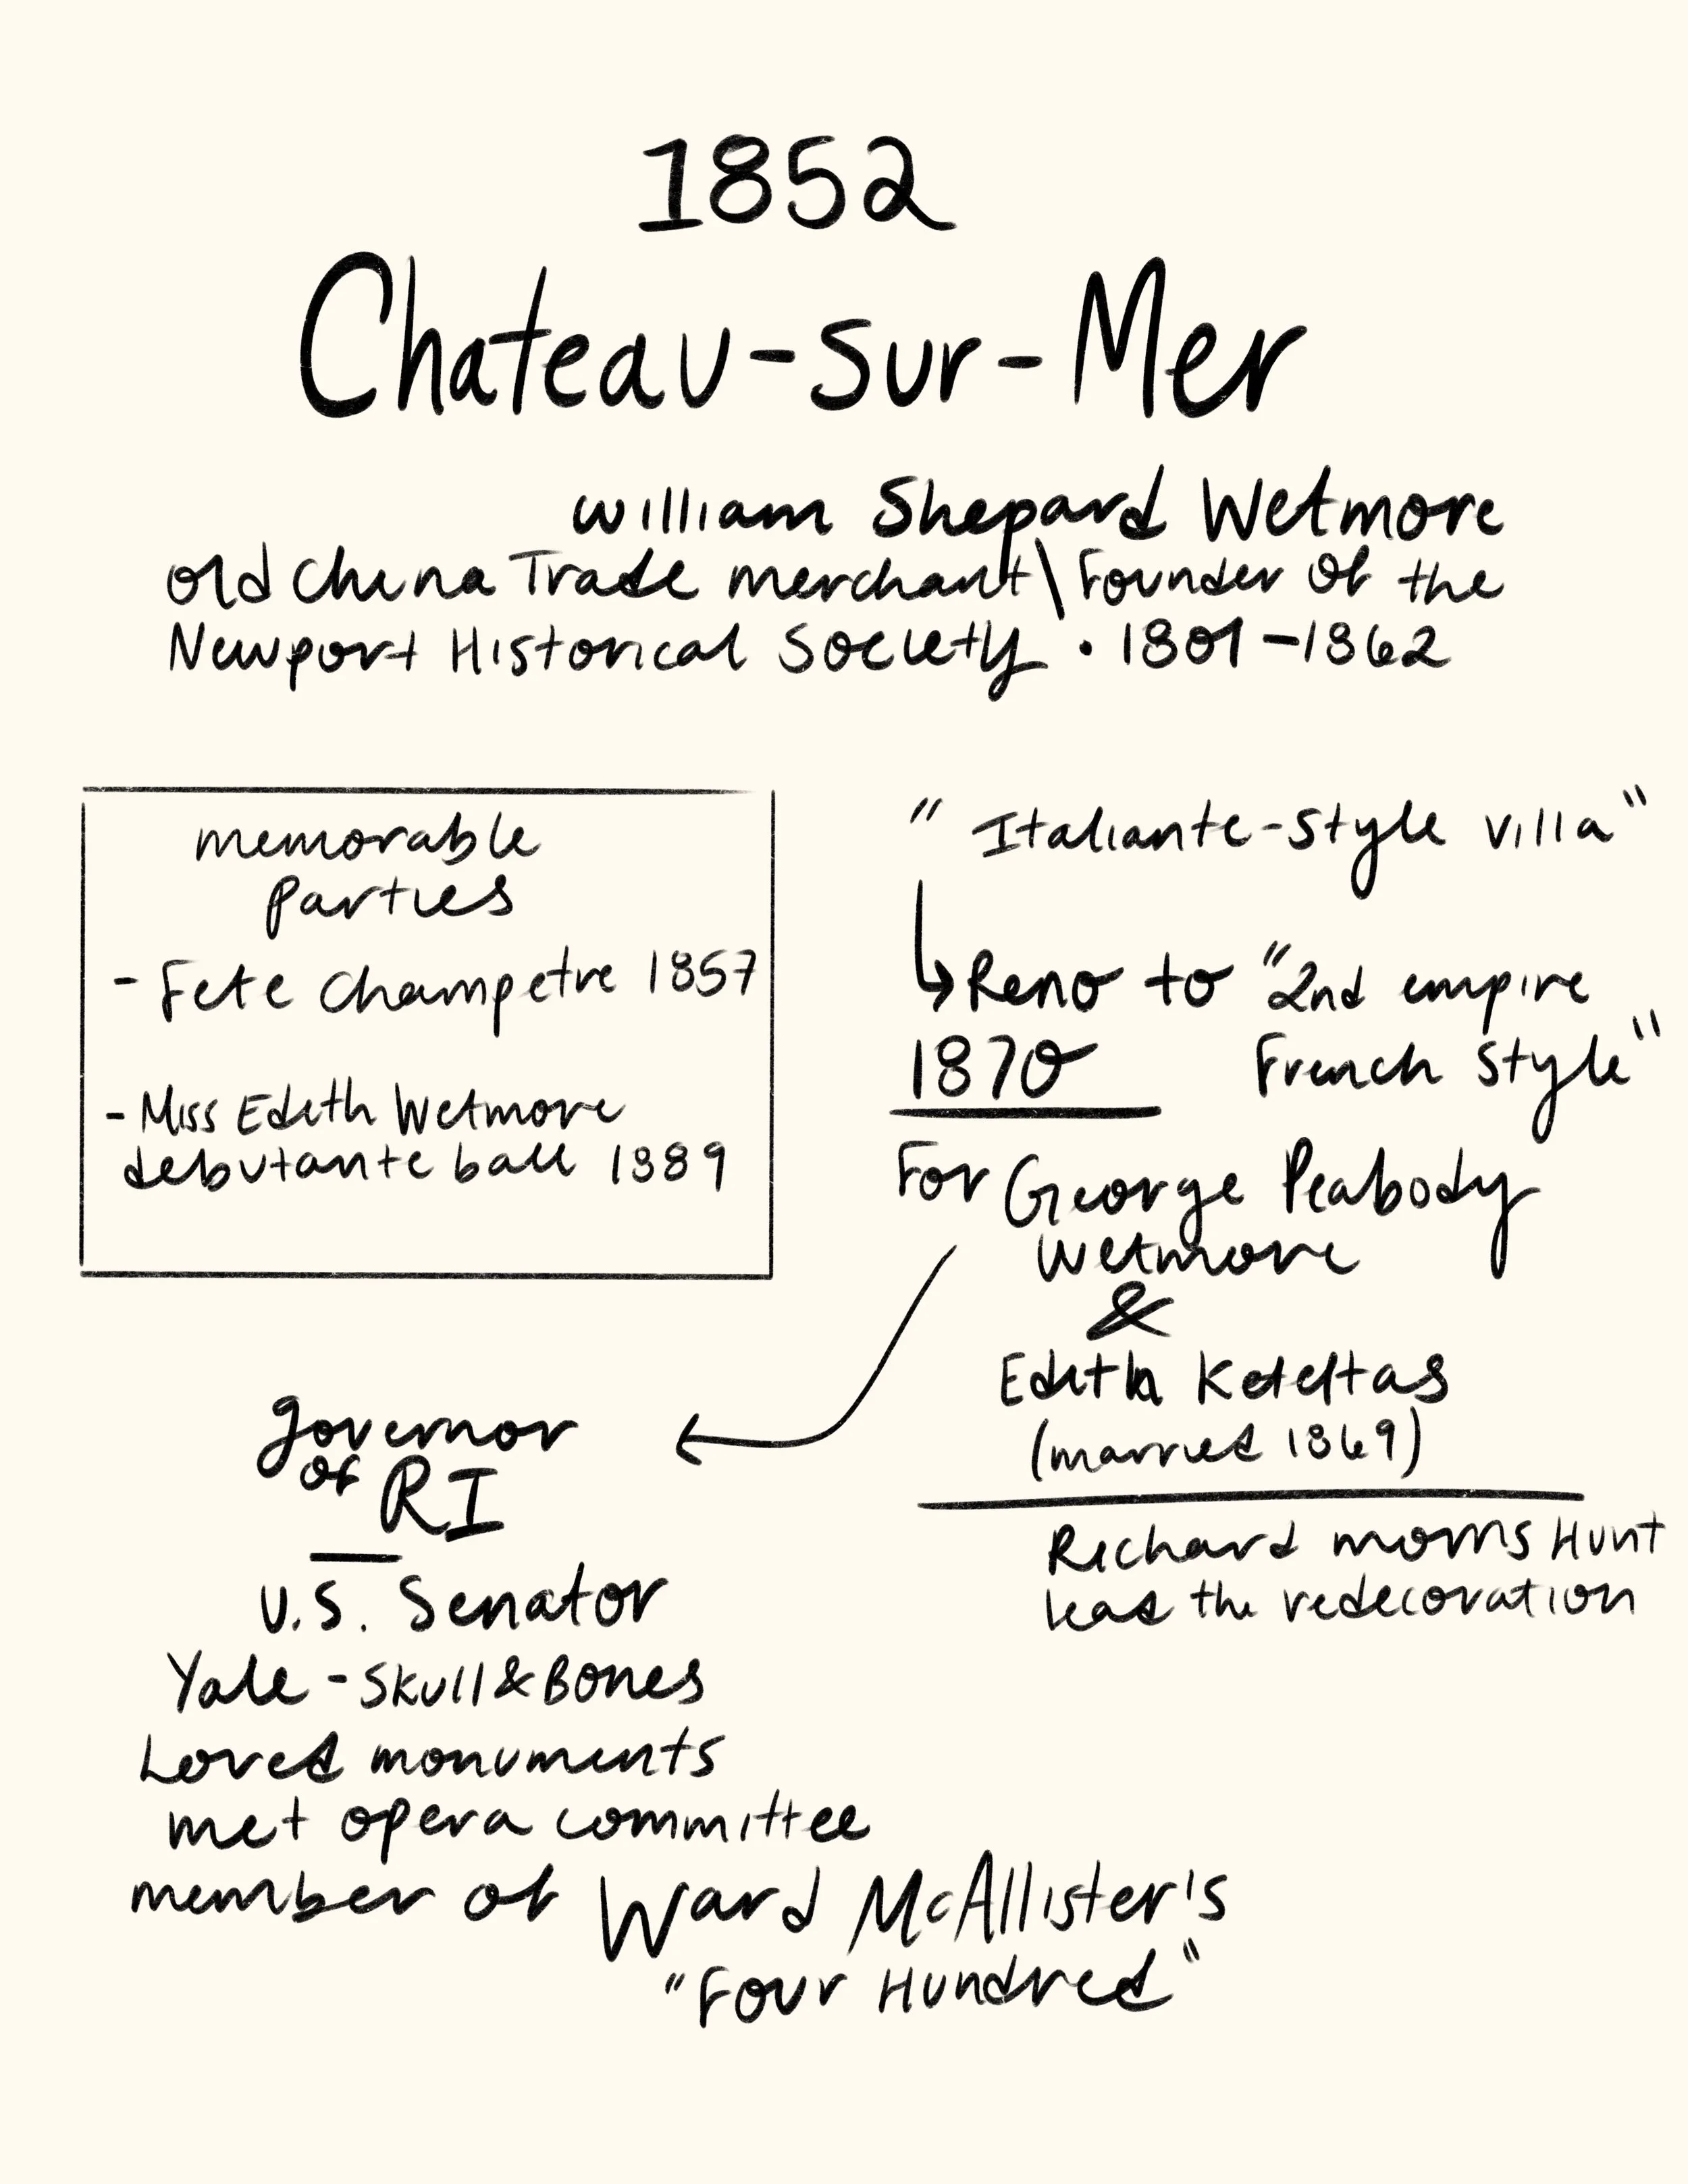 1852
Chateau-sur-Mer
William Shepard Wetmore
Old China Trade merchant \ Founder of the
Newport Historical Society • 1801-1862
memorable
Parties
- Fete Champetre 1857
- Miss Edith Wetmore
debutante ball 1889
" Italiante-style villa"
Reno to "2nd empire
1870 French Style"
For George Peabody
Wetmore
&
Edith Keteltas
(married 1869)
Richard Morris Hunt
lead the redecoration
governor
of RI
U.S. Senator
Yale - Skull & Bones
Loved monuments
met opera committee
member of Ward McAllister's
"Four Hundred"